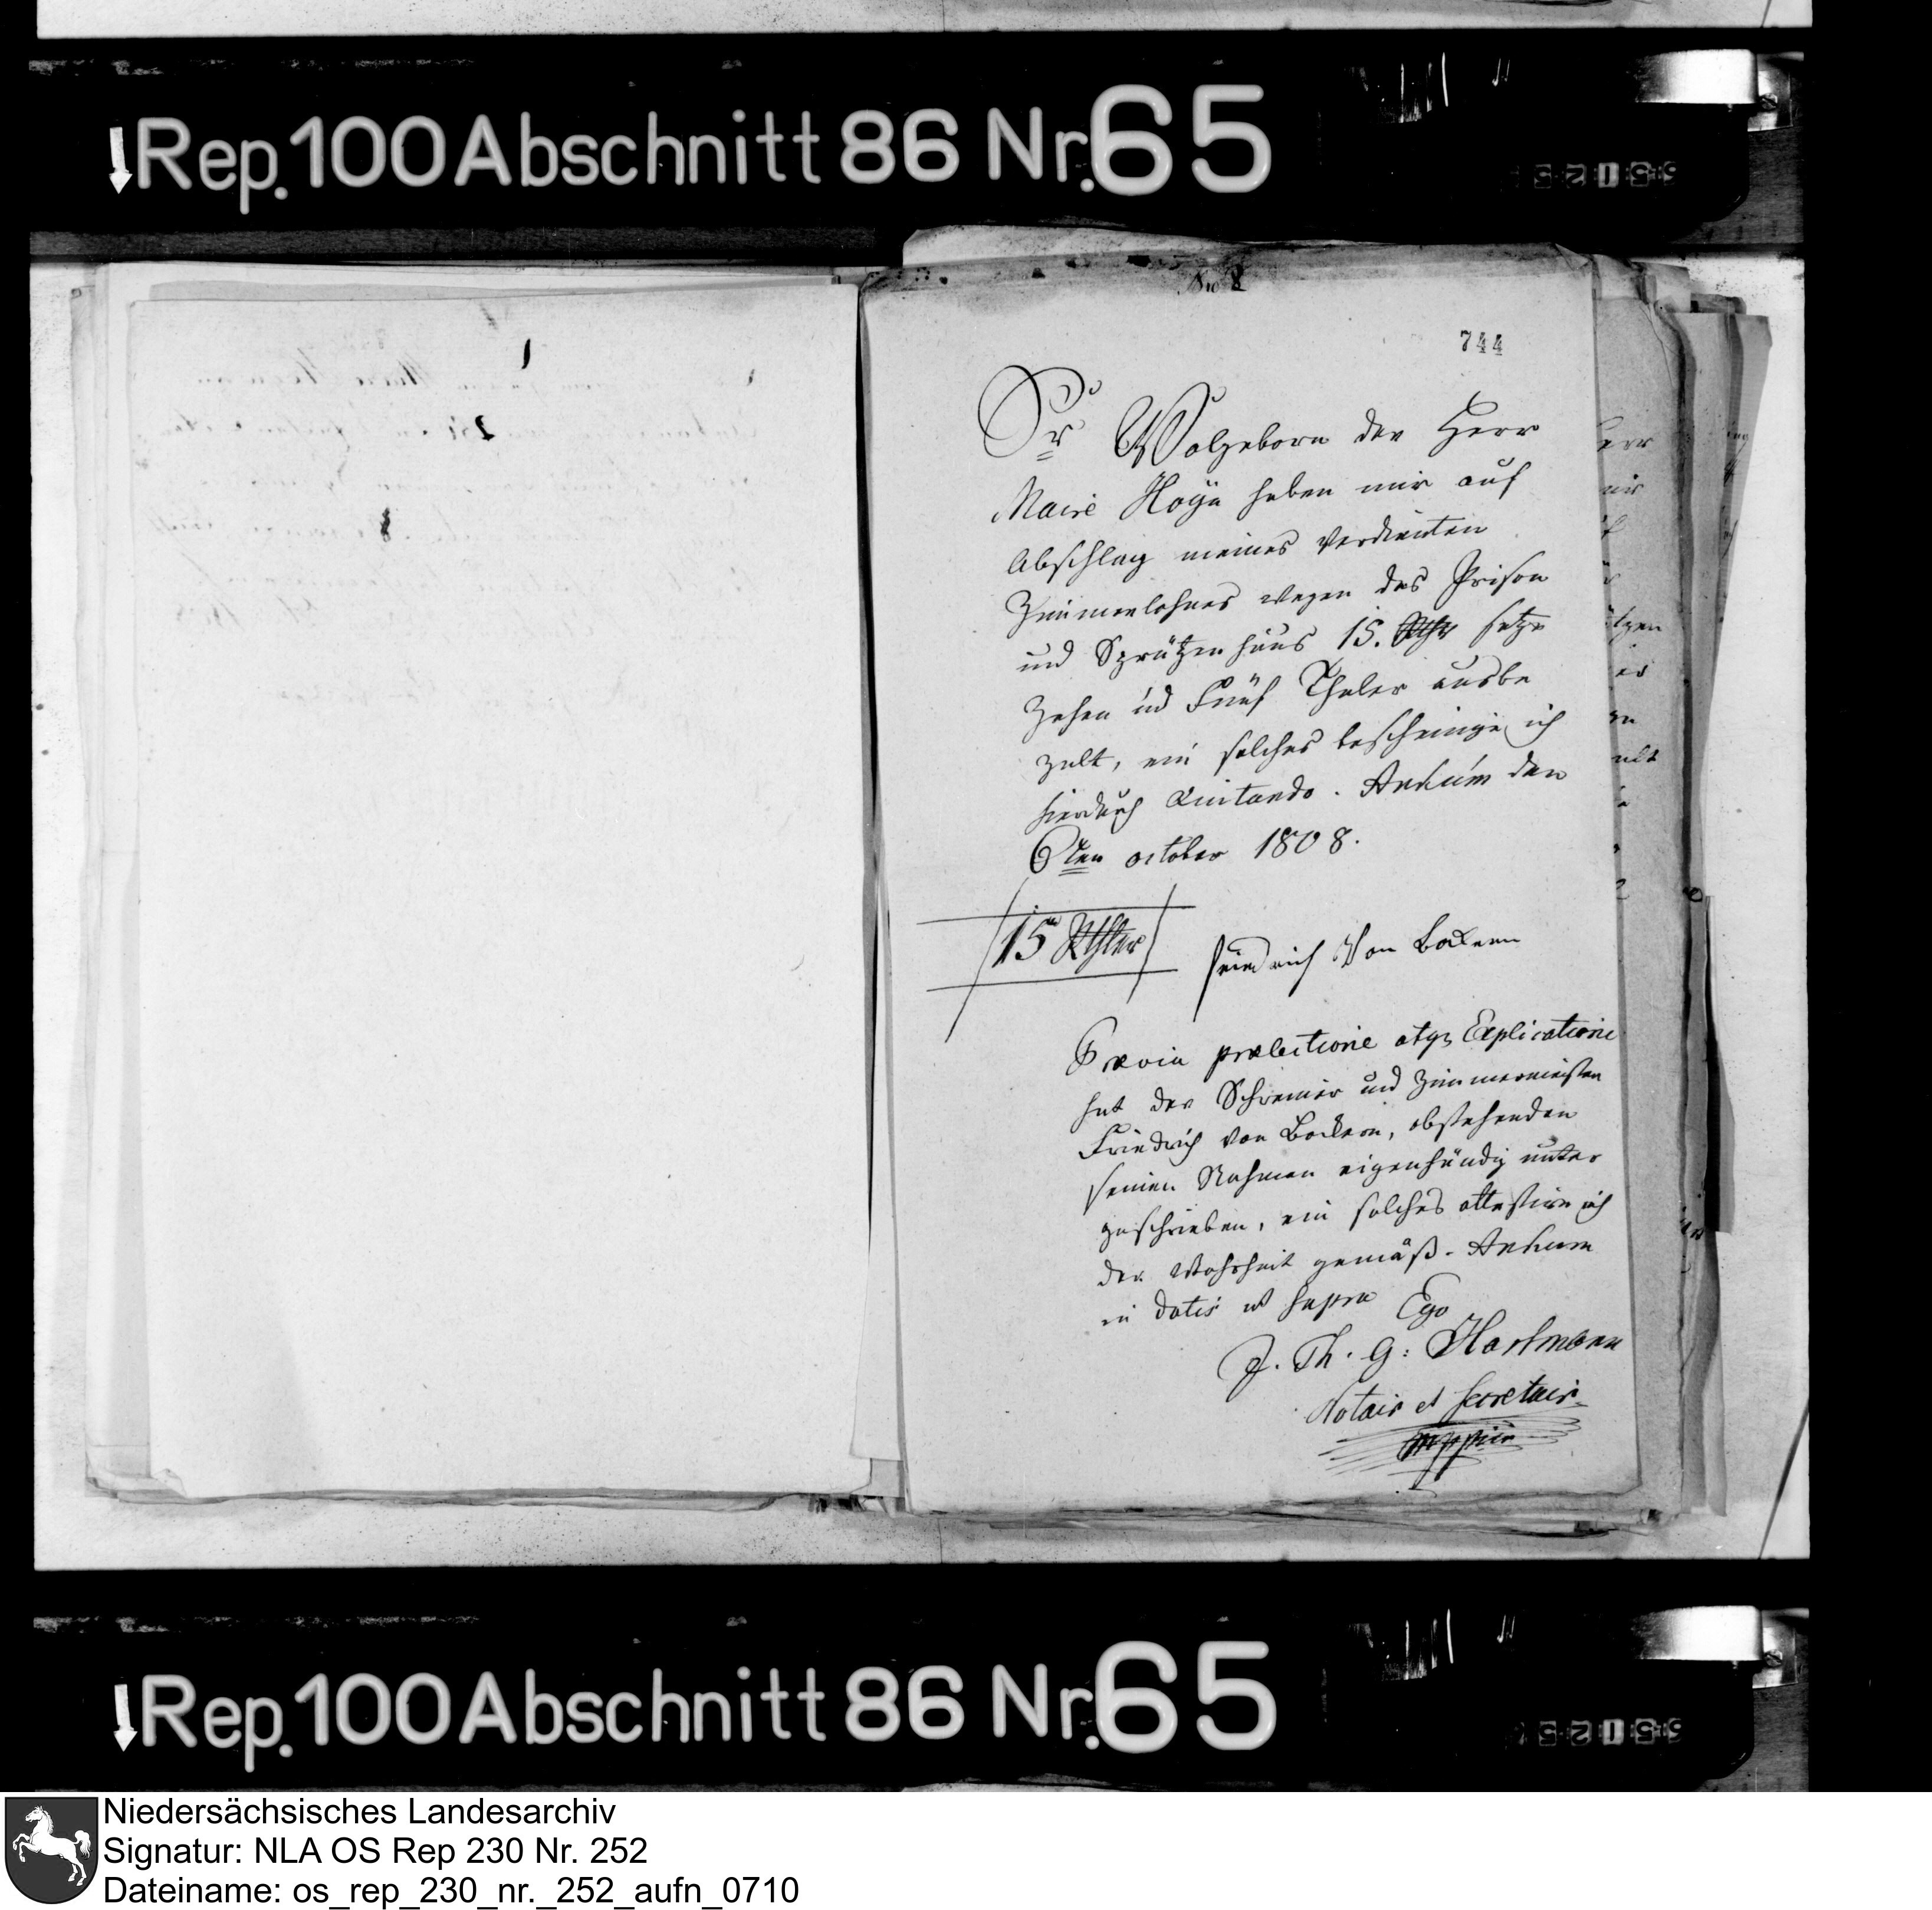 Rep. 100 Abschnitt 86 Nr. 65
No 8
744
Sr Wolgeborn der Herr
Maire Hoÿa haben mir auf
Abschlag meines Verdienten
Zimmerlohnes wegen des Prison
und Sprützenhaus 15. Rthr setze
Zehen ud Fünf Thaler ausbe
zalt, ein solches bescheinige ich
hierdurch Quitando. Ankum den
6ten october 1808.
15 Rthler
friedrich Von Bockern
Prævia prælectione atq Explicatione
hat der Schreiner und Zimmermeister
Friedrich von Bockern, obstehenden
seinen Nahmen eigenhändig unter
geschrieben, ein solches attestire ich
der Wahrheit gemäß. Ankum
in datis ut supra Ego
J. Th. G: Hartmann
Notair et Secretair
mppria
Rep. 100 Abschnitt 86 Nr. 65
Niedersächsisches Landesarchiv
Signatur: NLA OS Rep 230 Nr. 252
Dateiname: os_rep_230_nr._252_aufn_0710